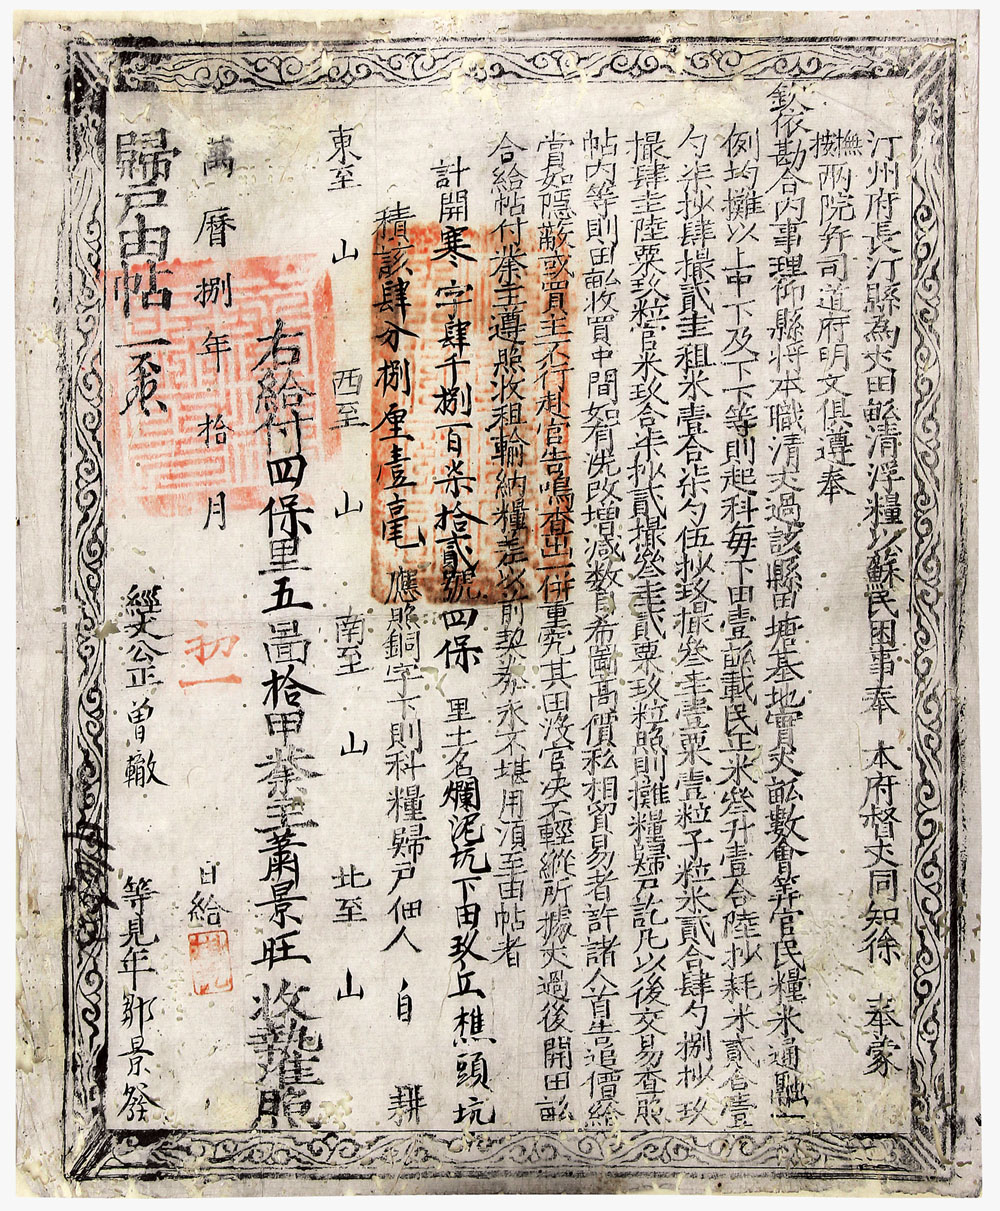 汀州府長汀縣為丈田畝清浮糧以蘇民困事奉 本府督丈同知徐 奉蒙
撫按兩院并司道府明文俱遵奉
欽依勘合內事理仰縣將本職清丈過該縣田塘基地實丈畝數會筭官民糧米通融一
例均攤以上中下及下下等則起科每下田壹畝載民正米叄升壹合陸抄耗米貳合壹
勺柒抄肆撮貳圭租米壹合柒勺伍抄玖撮叄圭壹粟壹粒子粒米貳合肆勺捌抄玖
撮肆圭陸粟玖粒官米玖合柒抄貳撮叄圭貳粟玖粒照則攤糧歸戶訖凡以後交易查照
帖內等則田畝收買中間如有洗改增減數目希圖高價私相貿易者許諸人首告追價給
賞如隱蔽或買主不行赴官告鳴查出一併重究其田沒官決不輕縱所據丈過後開田畝
合給帖付業主遵照收租輸納糧差以前契券永不堪用須至由帖者
計開寒字肆千捌百柒拾貳號四保 里土名爛泥坑下田玖丘樵頭坑
積該肆分捌厘壹毫 應照銅字下則科糧歸戶佃人 自 耕
東至 山 西至 山 南至 山 北至 山
右給付四保里五啚拾甲業主蕭景旺 收執准照
萬曆捌年拾月 初一 日給
歸戶由帖 一樣
經丈公正曾轍 等見年鄒景發